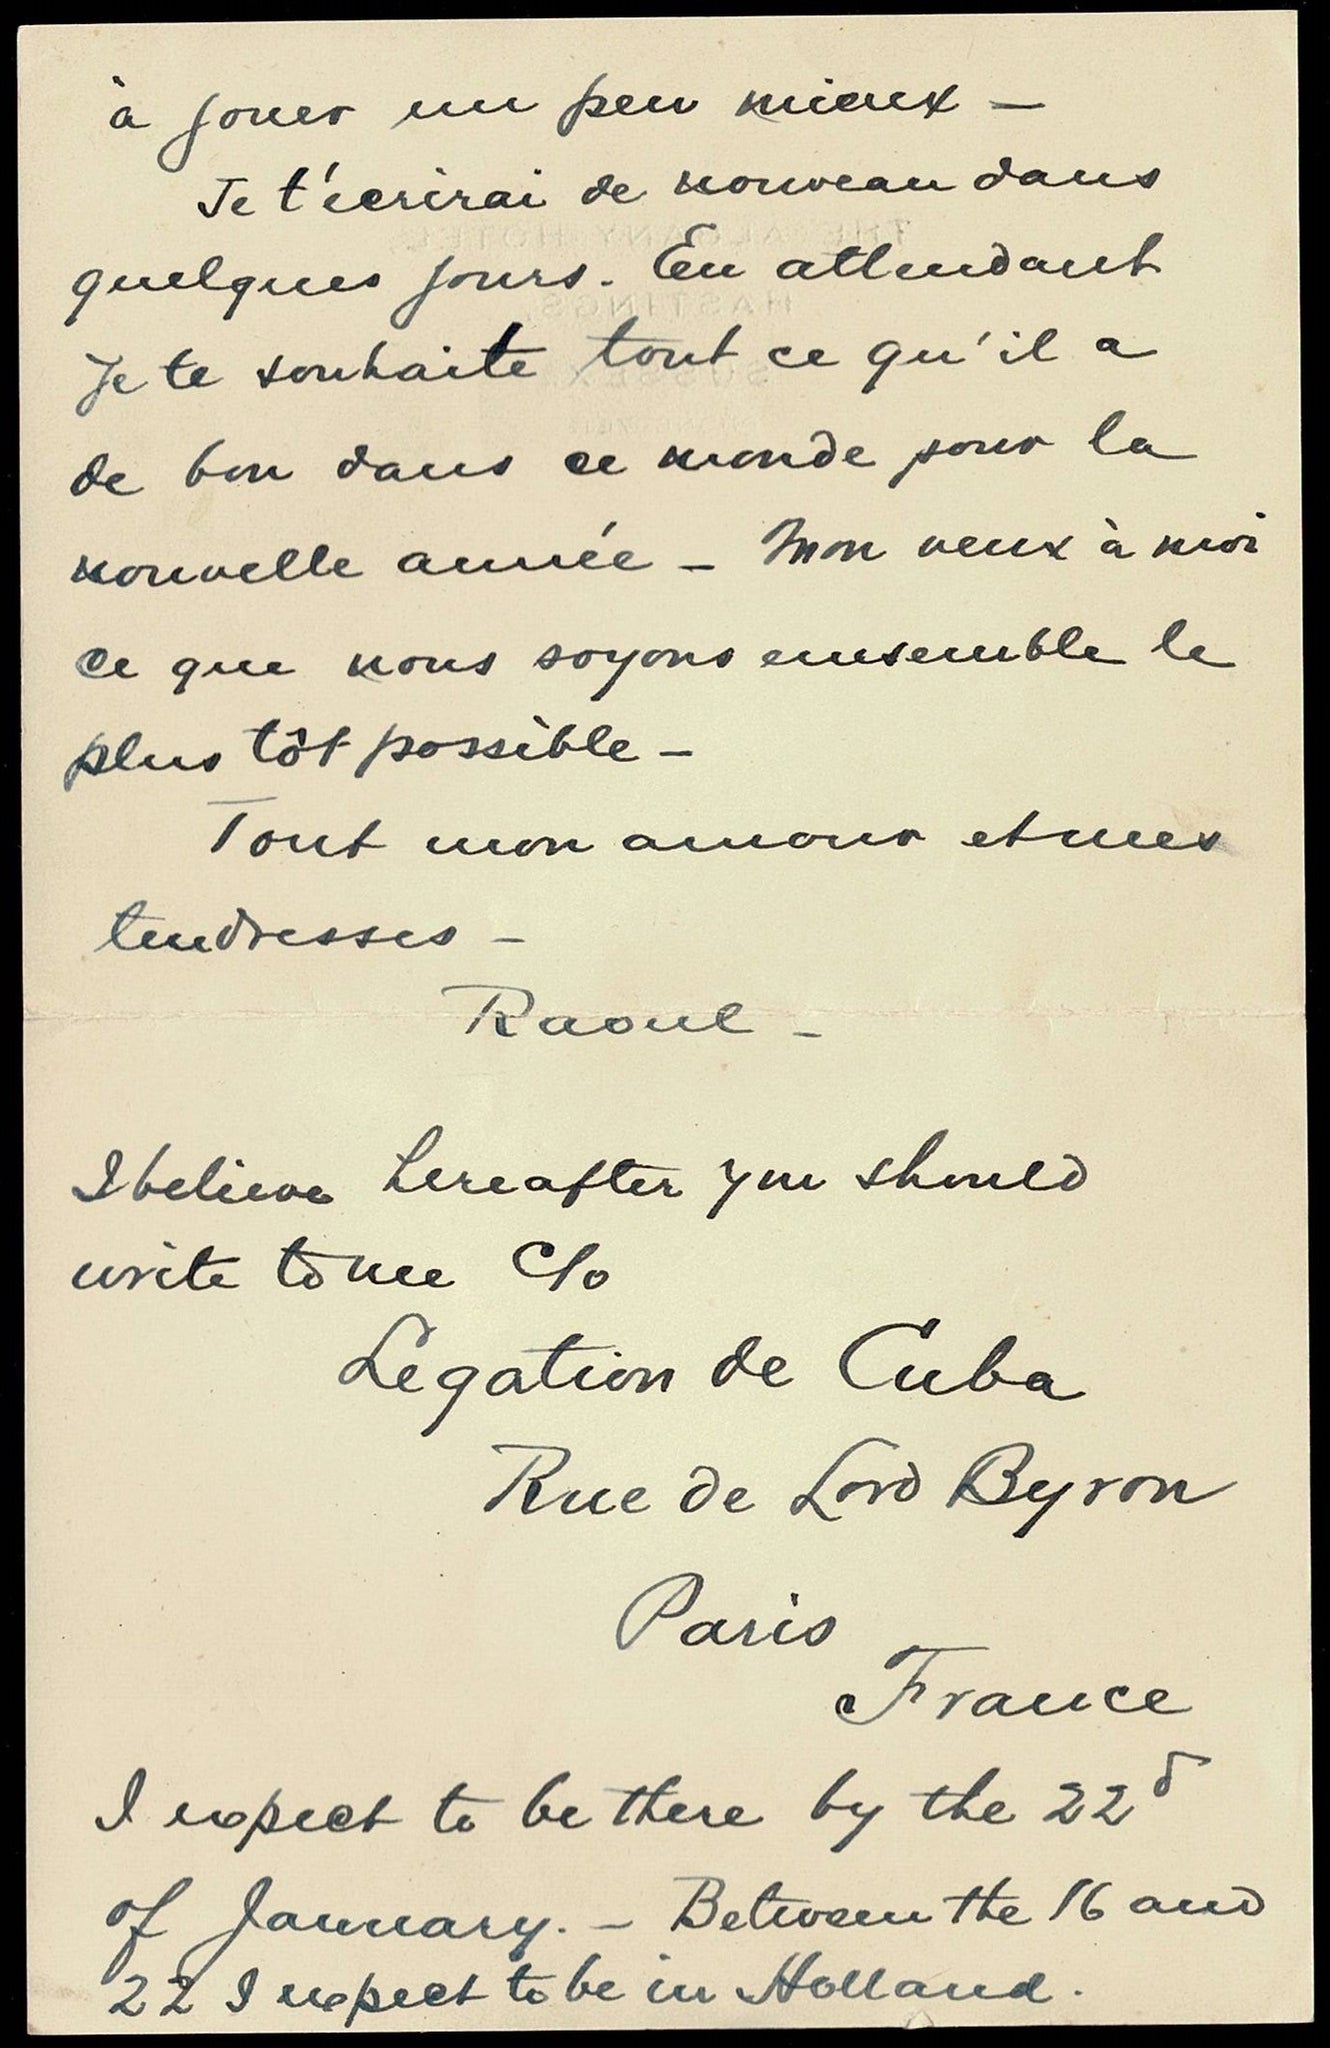 à jouer un peu mieux –
Je t'écrirai de nouveau dans
quelques jours. En attendant
je te souhaite tout ce qu'il a
de bon dans ce monde pour la
nouvelle année – Mon veux à moi
ce que nous soyons ensemble le
plus tôt possible –
Tout mon amour et mes
tendresses –
Raoul –
I believe hereafter you should
write to me c/o
Legation de Cuba
Rue de Lord Byron
Paris
France
I expect to be there by the 22d
of January. – Between the 16 and
22 I expect to be in Holland.